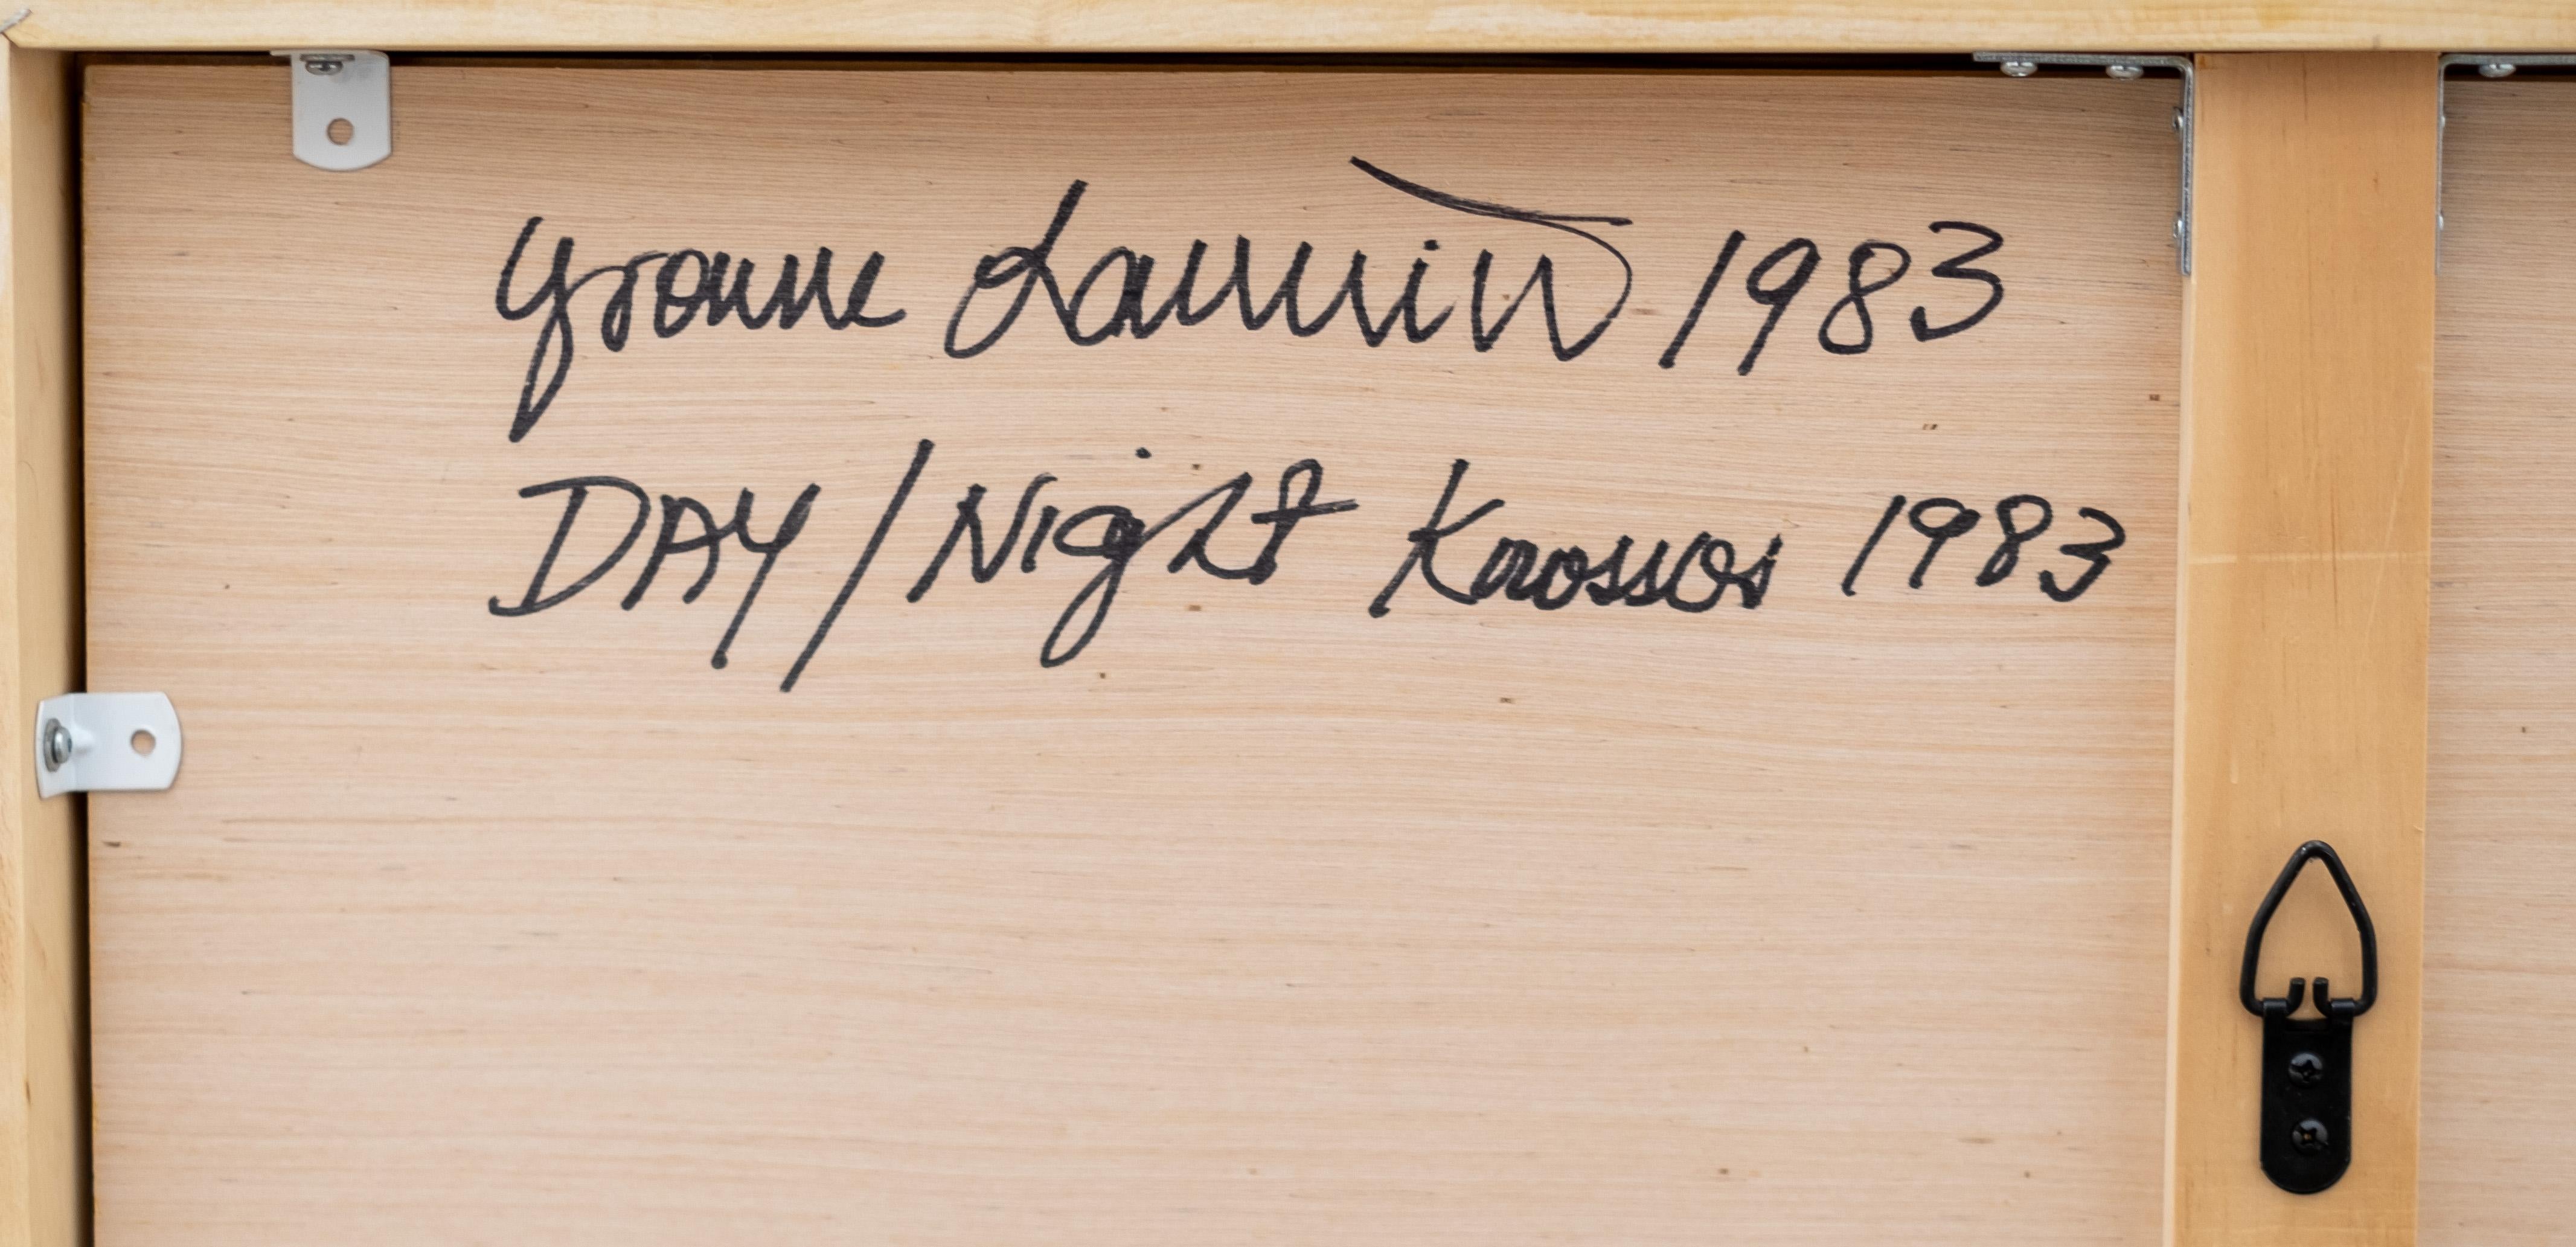 Yvonne Lammin 1983
DAY/Night Knossos 1983